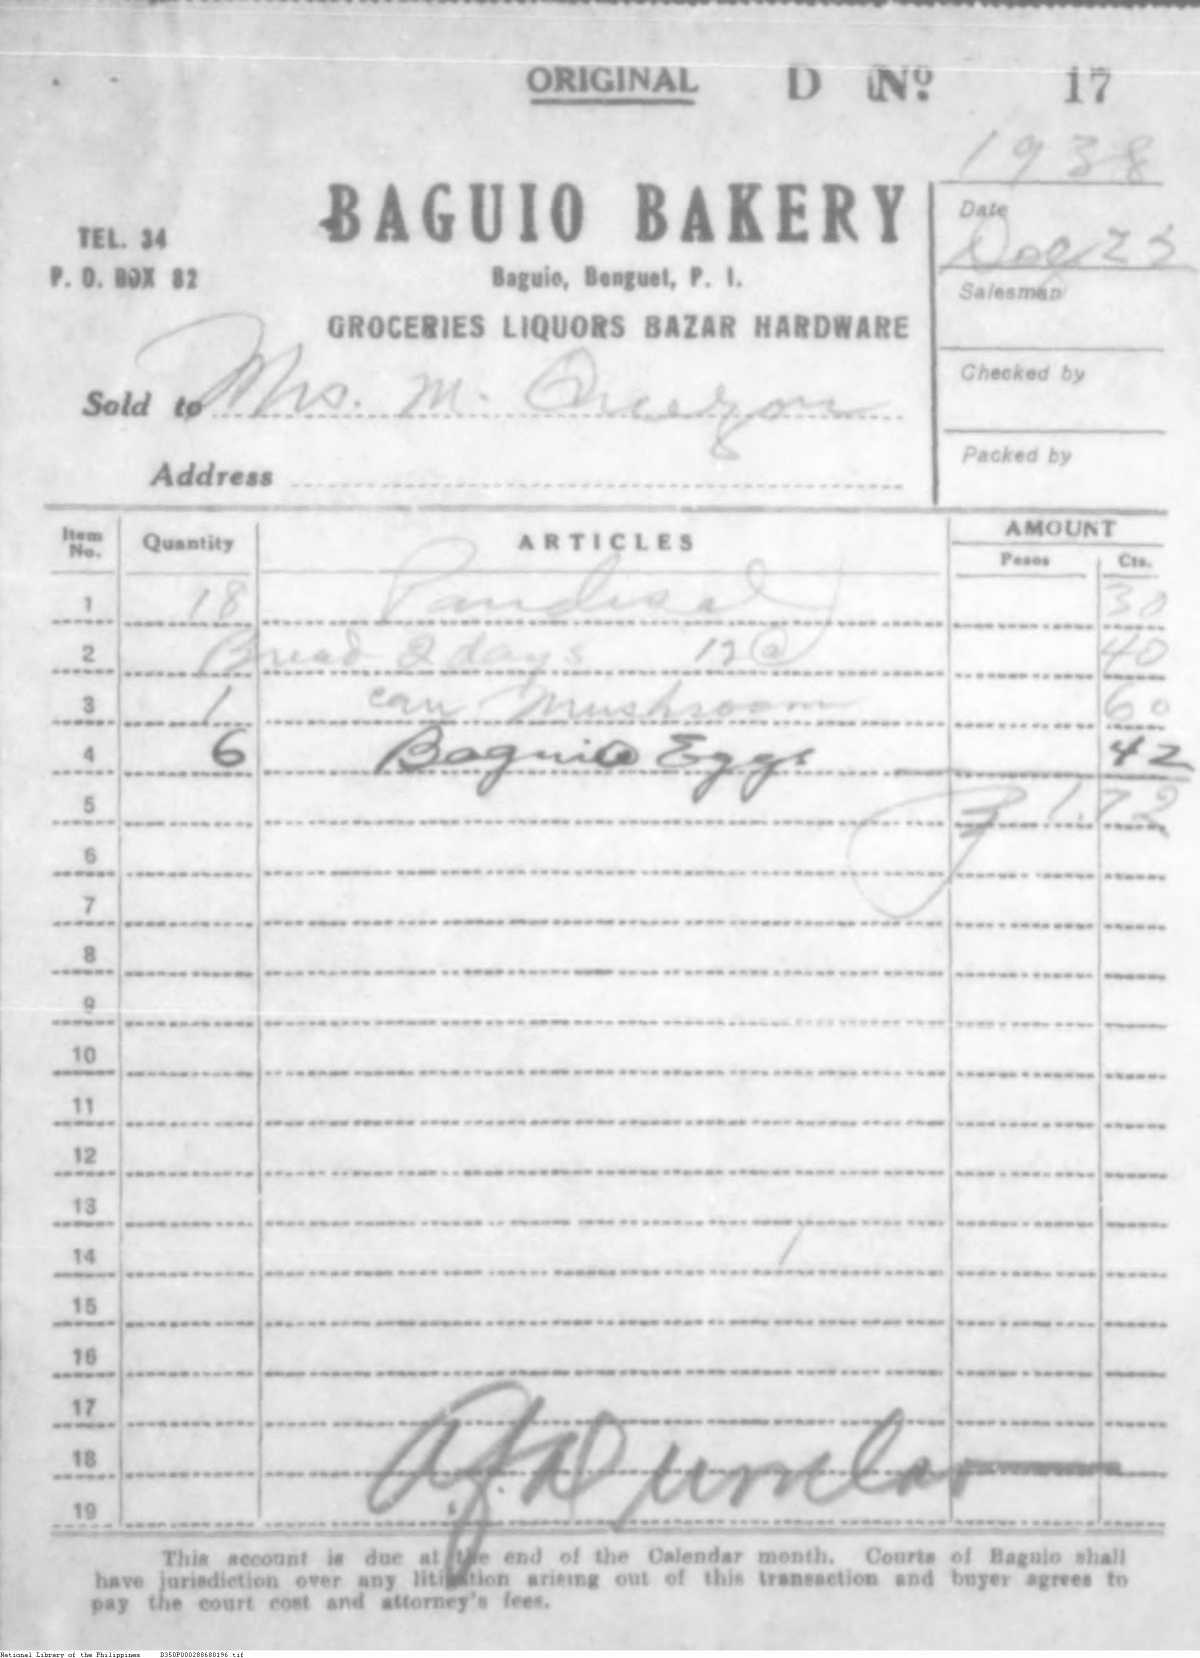 ORIGINAL D No. 17
1938
BAGUIO BAKERY
TEL. 34
P. O. BOX 82
Baguio, Benguet, P. I.
GROCERIES LIQUORS BAZAR HARDWARE
Date
Dec 23
Salesman
Checked by
Packed by
Sold to Mrs. M. Quezon
Address
Item No. Quantity ARTICLES AMOUNT
Pesos Cts.
1 18 Pandesal 30
2 Bread 2 days @ 40
3 1 can Mushroom 60
4 6 Baguio Eggs 42
5 ₱ 1.72
6
7
8
9
10
11
12
13
14
15
16
17
18
19
This account is due at the end of the Calendar month. Courts of Baguio shall
have jurisdiction over any litigation arising out of this transaction and buyer agrees to
pay the court cost and attorney's fees.
National Library of the Philippines